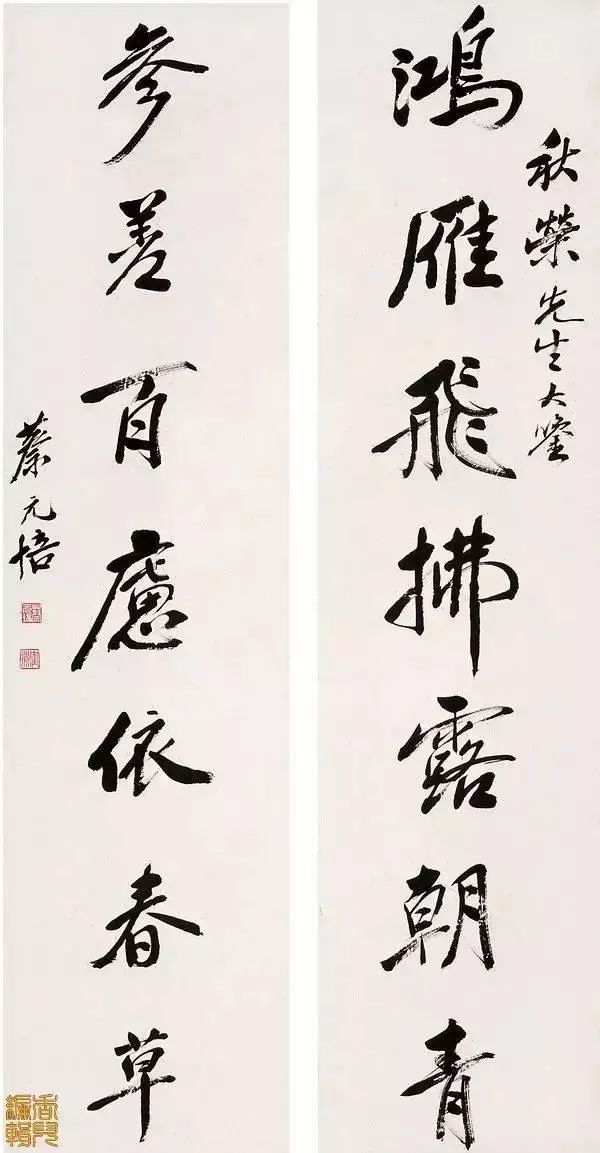 秋榮先生大鑒
鴻雁飛拂露朝青
參差百慮依春草
蔡元培